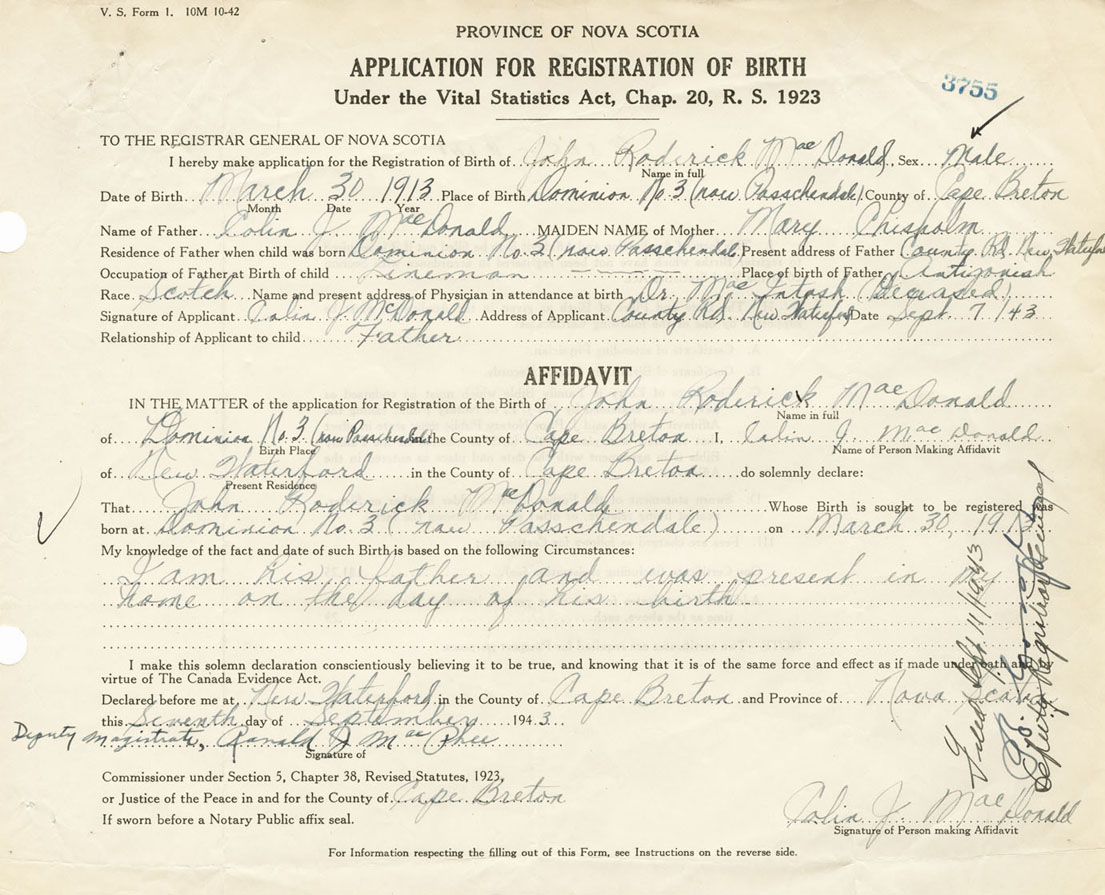 V. S. Form 1. 10M 10-42
PROVINCE OF NOVA SCOTIA
APPLICATION FOR REGISTRATION OF BIRTH
Under the Vital Statistics Act, Chap. 20, R. S. 1923
3755
TO THE REGISTRAR GENERAL OF NOVA SCOTIA
I hereby make application for the Registration of Birth of John Roderick MacDonald Sex Male
Name in full
Date of Birth March 30 1913 Place of Birth Dominion No.3 (now Passchendale) County of Cape Breton
Month Date Year
Name of Father Colin J. MacDonald MAIDEN NAME of Mother Mary Chisholm
Residence of Father when child was born Dominion No.3 (now Passchendale) Present address of Father County Rd. New Waterford
Occupation of Father at Birth of child Lineman Place of birth of Father Antigonish
Race Scotch Name and present address of Physician in attendance at birth Dr. MacIntosh (Deceased)
Signature of Applicant Colin J. McDonald Address of Applicant County Rd. New Waterford Date Sept. 7/43
Relationship of Applicant to child Father
AFFIDAVIT
IN THE MATTER of the application for Registration of the Birth of John Roderick MacDonald
Name in full
of Dominion No.3 (now Passchendale) in the County of Cape Breton I, Colin J. MacDonald
Birth Place Name of Person Making Affidavit
of New Waterford in the County of Cape Breton do solemnly declare:
Present Residence
That John Roderick McDonald Whose Birth is sought to be registered was
born at Dominion No.3 (now Passchendale) on March 30, 1913
My knowledge of the fact and date of such Birth is based on the following Circumstances:
I am his father and was present in my
home on the day of his birth
I make this solemn declaration conscientiously believing it to be true, and knowing that it is of the same force and effect as if made under oath and by
virtue of The Canada Evidence Act.
Declared before me at New Waterford in the County of Cape Breton and Province of Nova Scotia
this Seventh day of September 1943.
Deputy Magistrate, Ranald J. MacPhee
Signature of
Commissioner under Section 5, Chapter 38, Revised Statutes, 1923,
or Justice of the Peace in and for the County of Cape Breton
If sworn before a Notary Public affix seal.
Colin J. MacDonald
Signature of Person making Affidavit
For Information respecting the filling out of this Form, see Instructions on the reverse side.
Filed Sept. 11/1943
Deputy Registrar General